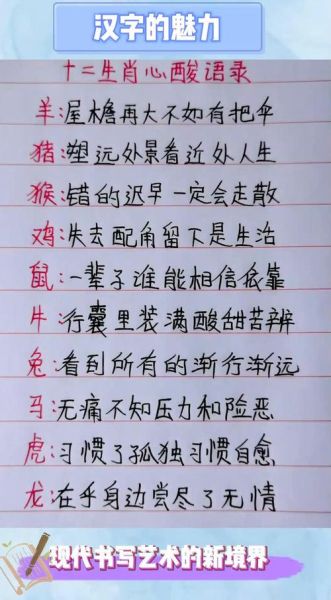 汉字的魅力
十二生肖心酸语录
羊:屋檐再大不如有把伞
猪:塑远处景看近处人生
猴:错的迟早一定会走散
鸡:失去配角留下是生活
鼠:一辈子谁能相信依靠
牛:行囊里装满酸甜苦辨
兔:看到所有的渐行渐远
马:无痛不知压力和险恶
虎:习惯了孤独习惯自愈
龙:在乎身边尝尽了无情
现代书写艺术的新境界